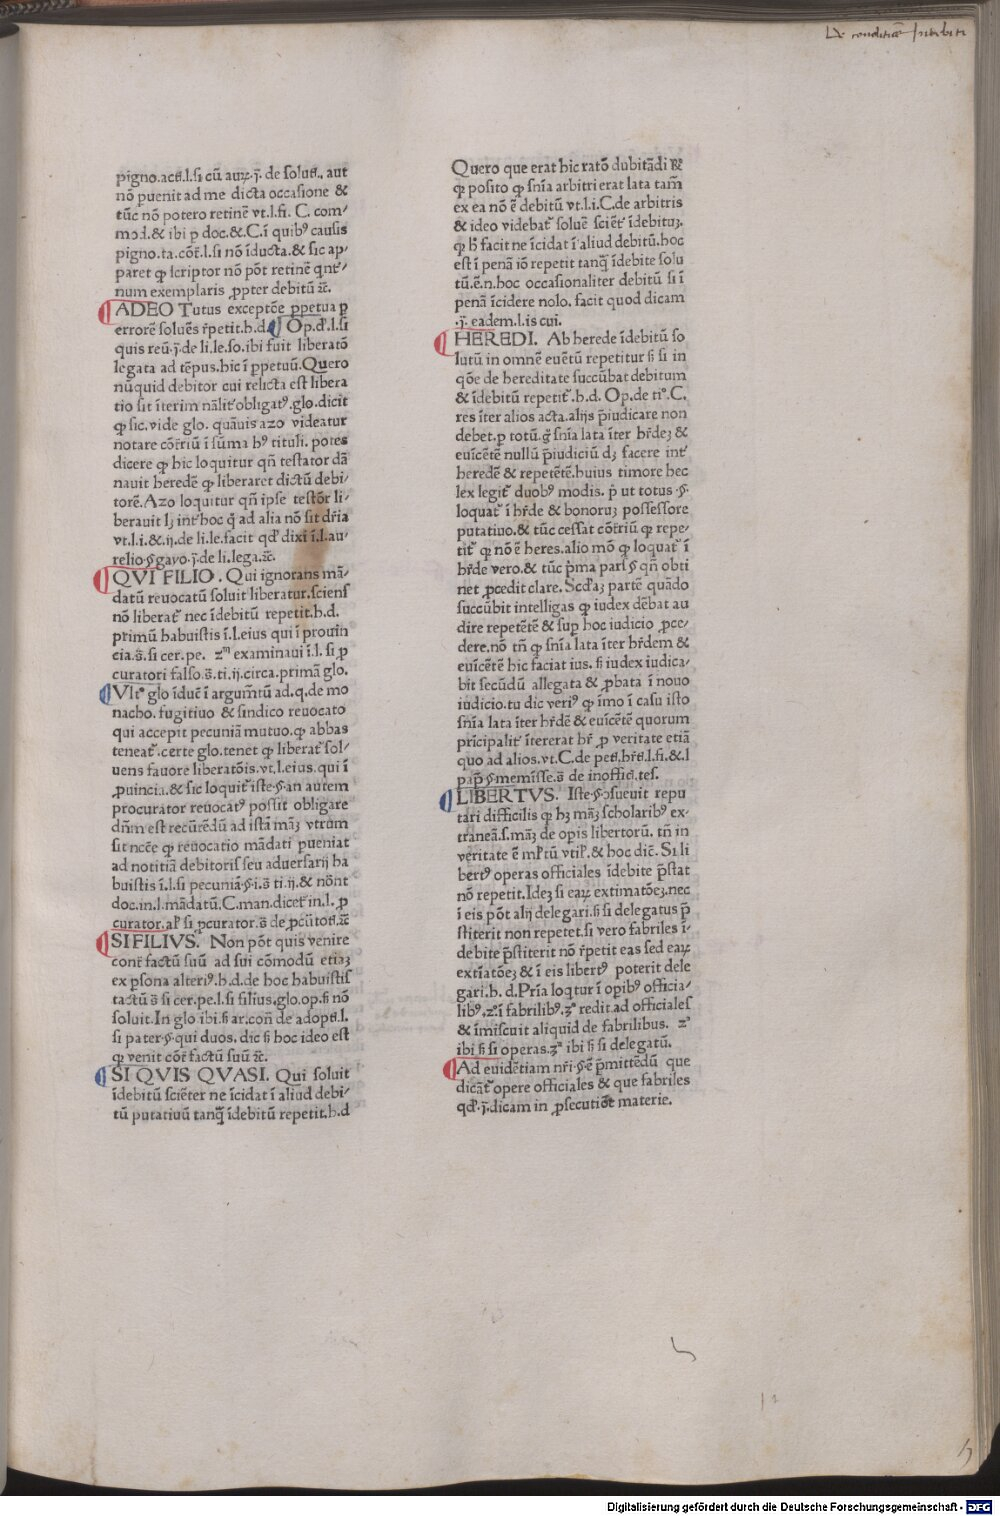 De condictiõe indebiti
pigno.act̃.l.si cũ auꝝ.ȷ̃. de solut̃., aut
nõ puenit ad me dicta occasione &
tũc nõ potero retinẽ vt.l.fi. C. com/
mod.& ibi p doc.&.C.ĩ quibꝰ causis
pigno.ta.cõt̃.l.si nõ ĩducta.& sic ap/
paret ꝙ scriptor nõ põt retinẽ qnt̃/
num exemplaris ꝓpter debitũ ⁊c̃.
ADEO Tutus exceptõe ppetua p
errorẽ soluẽs r̃petit.h.d. Op.d̃.l.si
quis reũ.ȷ̃.de li.le.so.ibi fuit liberatõ
legata ad tẽpus.hic ĩ ꝑpetuũ.Quero
nũquid debitor cui relicta est libera
tio sit ĩterim nãlit̃ obligatꝰ.glo.dicit
ꝙ sic.vide glo. quãuis azo videatur
notare cõt̃riũ ĩ sũma hꝰ tituli. potes
dicere ꝙ hic loquitur qñ testator dã
nauit heredẽ ꝙ liberaret dictũ debi/
torẽ.Azo loquitur qñ ipse testõr li/
berauit lꝫ int̃ hoc q̃ ad alia nõ sit dr̃ia
vt.l.i.&.ij.de li.le.facit qd̃ dixi ĩ.l.au/
relio.§.gayo.ȷ̃.de li.lega.⁊c̃.
QVI FILIO. Qui ignorans mã/
datũ reuocatũ soluit liberatur.sciens
nõ liberat̃ nec ĩdebitũ repetit.h.d.
primũ habuistis ĩ.l.eius qui ĩ prouin
cia.s̃.si cer.pe. 2ᵐ examinaui ĩ.l. si ꝓ
curatori falso.s̃.ti.ij.circa.primã glo.
Vltᵒ glo ĩducĩt ĩ argum̃tũ ad.q.de mo
nacho. fugitiuo & sindico reuocato
qui accepit pecuniã mutuo.ꝙ abbas
teneat̃.certe glo.tenet ꝙ liberat̃ sol/
uens fauore liberatõis.vt.l.eius.qui ĩ
ꝓuincia.& sic loquit̃ iste.§.an autem
procurator reuocatꝰ possit obligare
dñm est recũrẽdũ ad istã mãꝫ vtrum
sit ncc̃e ꝙ reuocatio mãdati pueniat
ad notitiã debitoris seu aduersarij ha
buistis ĩ.l.si pecuniã.§.i.s̃ ti.ij.& nõnt
doc.in.l.mãdatũ.C.man.dicet̃ in.l. ꝓ
curator.al̃ si pcurator.s̃ de ꝓcũtoɤ.⁊c̃
SI FILIVS. Non põt quis venire
contr̃ factũ suũ ad sui cõmodũ etiaꝫ
ex psona alteriꝰ.h.d.de hoc habuistis
tactũ s̃ si cer.pe.l.si filius.glo.op.ɧ nõ
soluit.In glo ibi.ɧ ar.coñ de adopt̃.l.
si pater.§.qui duos. dic ɧ hoc ideo est
ꝙ venit cõt̃ factũ suũ ⁊c̃.
SI QVIS QVASI. Qui soluit
ĩdebitũ sciẽter ne ĩcidat ĩ aliud debi/
tũ putatiuũ tanꝙ̃ ĩdebitũ repetit.h.d
Quero que erat hic ratõ dubitãdi R̃
ꝙ posito ꝙ sñia arbitri erat lata tam̃
ex ea nõ ẽ debitũ vt.l.i.C.de arbitris
& ideo videbat̃ soluẽ sciẽt̃ ĩdebituꝫ.
ꝙ h̃ facit ne ĩcidat ĩ aliud debitũ.hoc
est ĩ penã iõ repetit tanꝙ̃ ĩdebite solu
tũ.ẽ.n.hoc occasionaliter debitũ si ĩ
penã ĩcidere nolo. facit quod dicam
.ȷ̃. eadem.l.is cui.
HEREDI. Ab herede ĩdebitũ so
lutũ in omnẽ euẽtũ repetitur ɧ si in
qõe de hereditate succũbat debitum
& ĩdebitũ repetit̃.h.d. Op.de tiᵒ.C.
res ĩter alios acta.alijs p̃iudicare non
debet.p totũ.g̃ sñia lata ĩter hr̃deꝫ &
euĩcẽtẽ nullũ p̃iudiciũ dꝫ facere int̃
heredẽ & repetẽtẽ.huius timore hec
lex legit̃ duobꝰ modis. p̃ ut totus .§.
loquat̃ ĩ hr̃de & bonoruꝫ possessore
putatiuo.& tũc cessat cõt̃riũ ꝙ repe/
tit̃ ꝙ nõ ẽ heres.alio mõ ꝙ loquat̃ ĩ
hr̃de vero.& tũc p̃ma pars § qñ obti
net ꝓcedit clare. Scd̃aꝫ partẽ quãdo
succũbit intelligas ꝙ iudex dẽbat au
dire repetẽtẽ & sup hoc iudicio ꝓce/
dere.nõ tñ ꝙ sñia lata ĩter hr̃dem &
euĩcẽtẽ hic faciat ius. ɧ iudex iudica/
bit secũdũ allegata & ꝓbata ĩ nouo
iudicio.tu dic veriꝰ ꝙ ĩmo ĩ casu isto
sñia lata ĩter hr̃dẽ & euĩcẽtẽ quorum
prĩcipalit̃ ĩtererat hr̃ ꝓ veritate etiã
quo ad alios.vt.C.de pet̃.hr̃t̃.l.fi.&.l
pap̃.§.memĩsse.s̃ de inoffici.tes.
LIBERTVS. Iste.§.ↄsueuit repu
tari difficilis ꝙ hꝫ mãꝫ scholaribꝰ ex/
traneã.s.mãꝫ de opis libertorũ. tñ in
veritate ẽ ml̃tũ vtil̃.& hoc dic̃. Si li
bertꝰ operas officiales ĩdebite p̃stat
nõ repetit.Ideꝫ si eaꝝ extimatõeꝫ.nec
ĩ eis põt alij delegari.ɧ si delegatus p̃
stiterit non repetet.si vero fabriles ĩ/
debite p̃stiterit nõ r̃petit eas sed eaꝝ
extĩatõeꝫ & ĩ eis libertꝰ poterit dele
gari.h. d.Pr̃ia loqtur ĩ opibꝰ officia/
libꝰ.2ᵒ.ĩ fabrilibꝰ.3ᵒ redit ad officiales
& ĩmiscuit aliquid de fabrilibus. 2ᵒ
ibi ɧ si operas.3ᵃ ibi ɧ si delegatũ.
Ad euidẽtiam nr̃i.§.ẽ p̃mittẽdũ que
dicãt̃ opere officiales & que fabriles
qd̃.ȷ̃.dicam in ꝓsecutiõe materie.
Digitalisierung gefördert durch die Deutsche Forschungsgemeinschaft - DFG